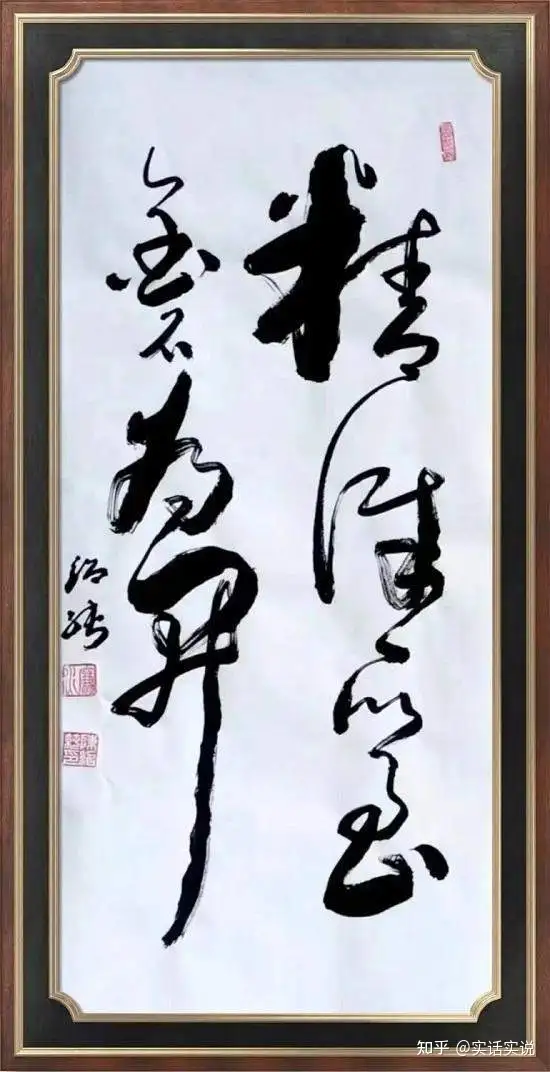 精诚所至
金石为开
知乎 @实话实说